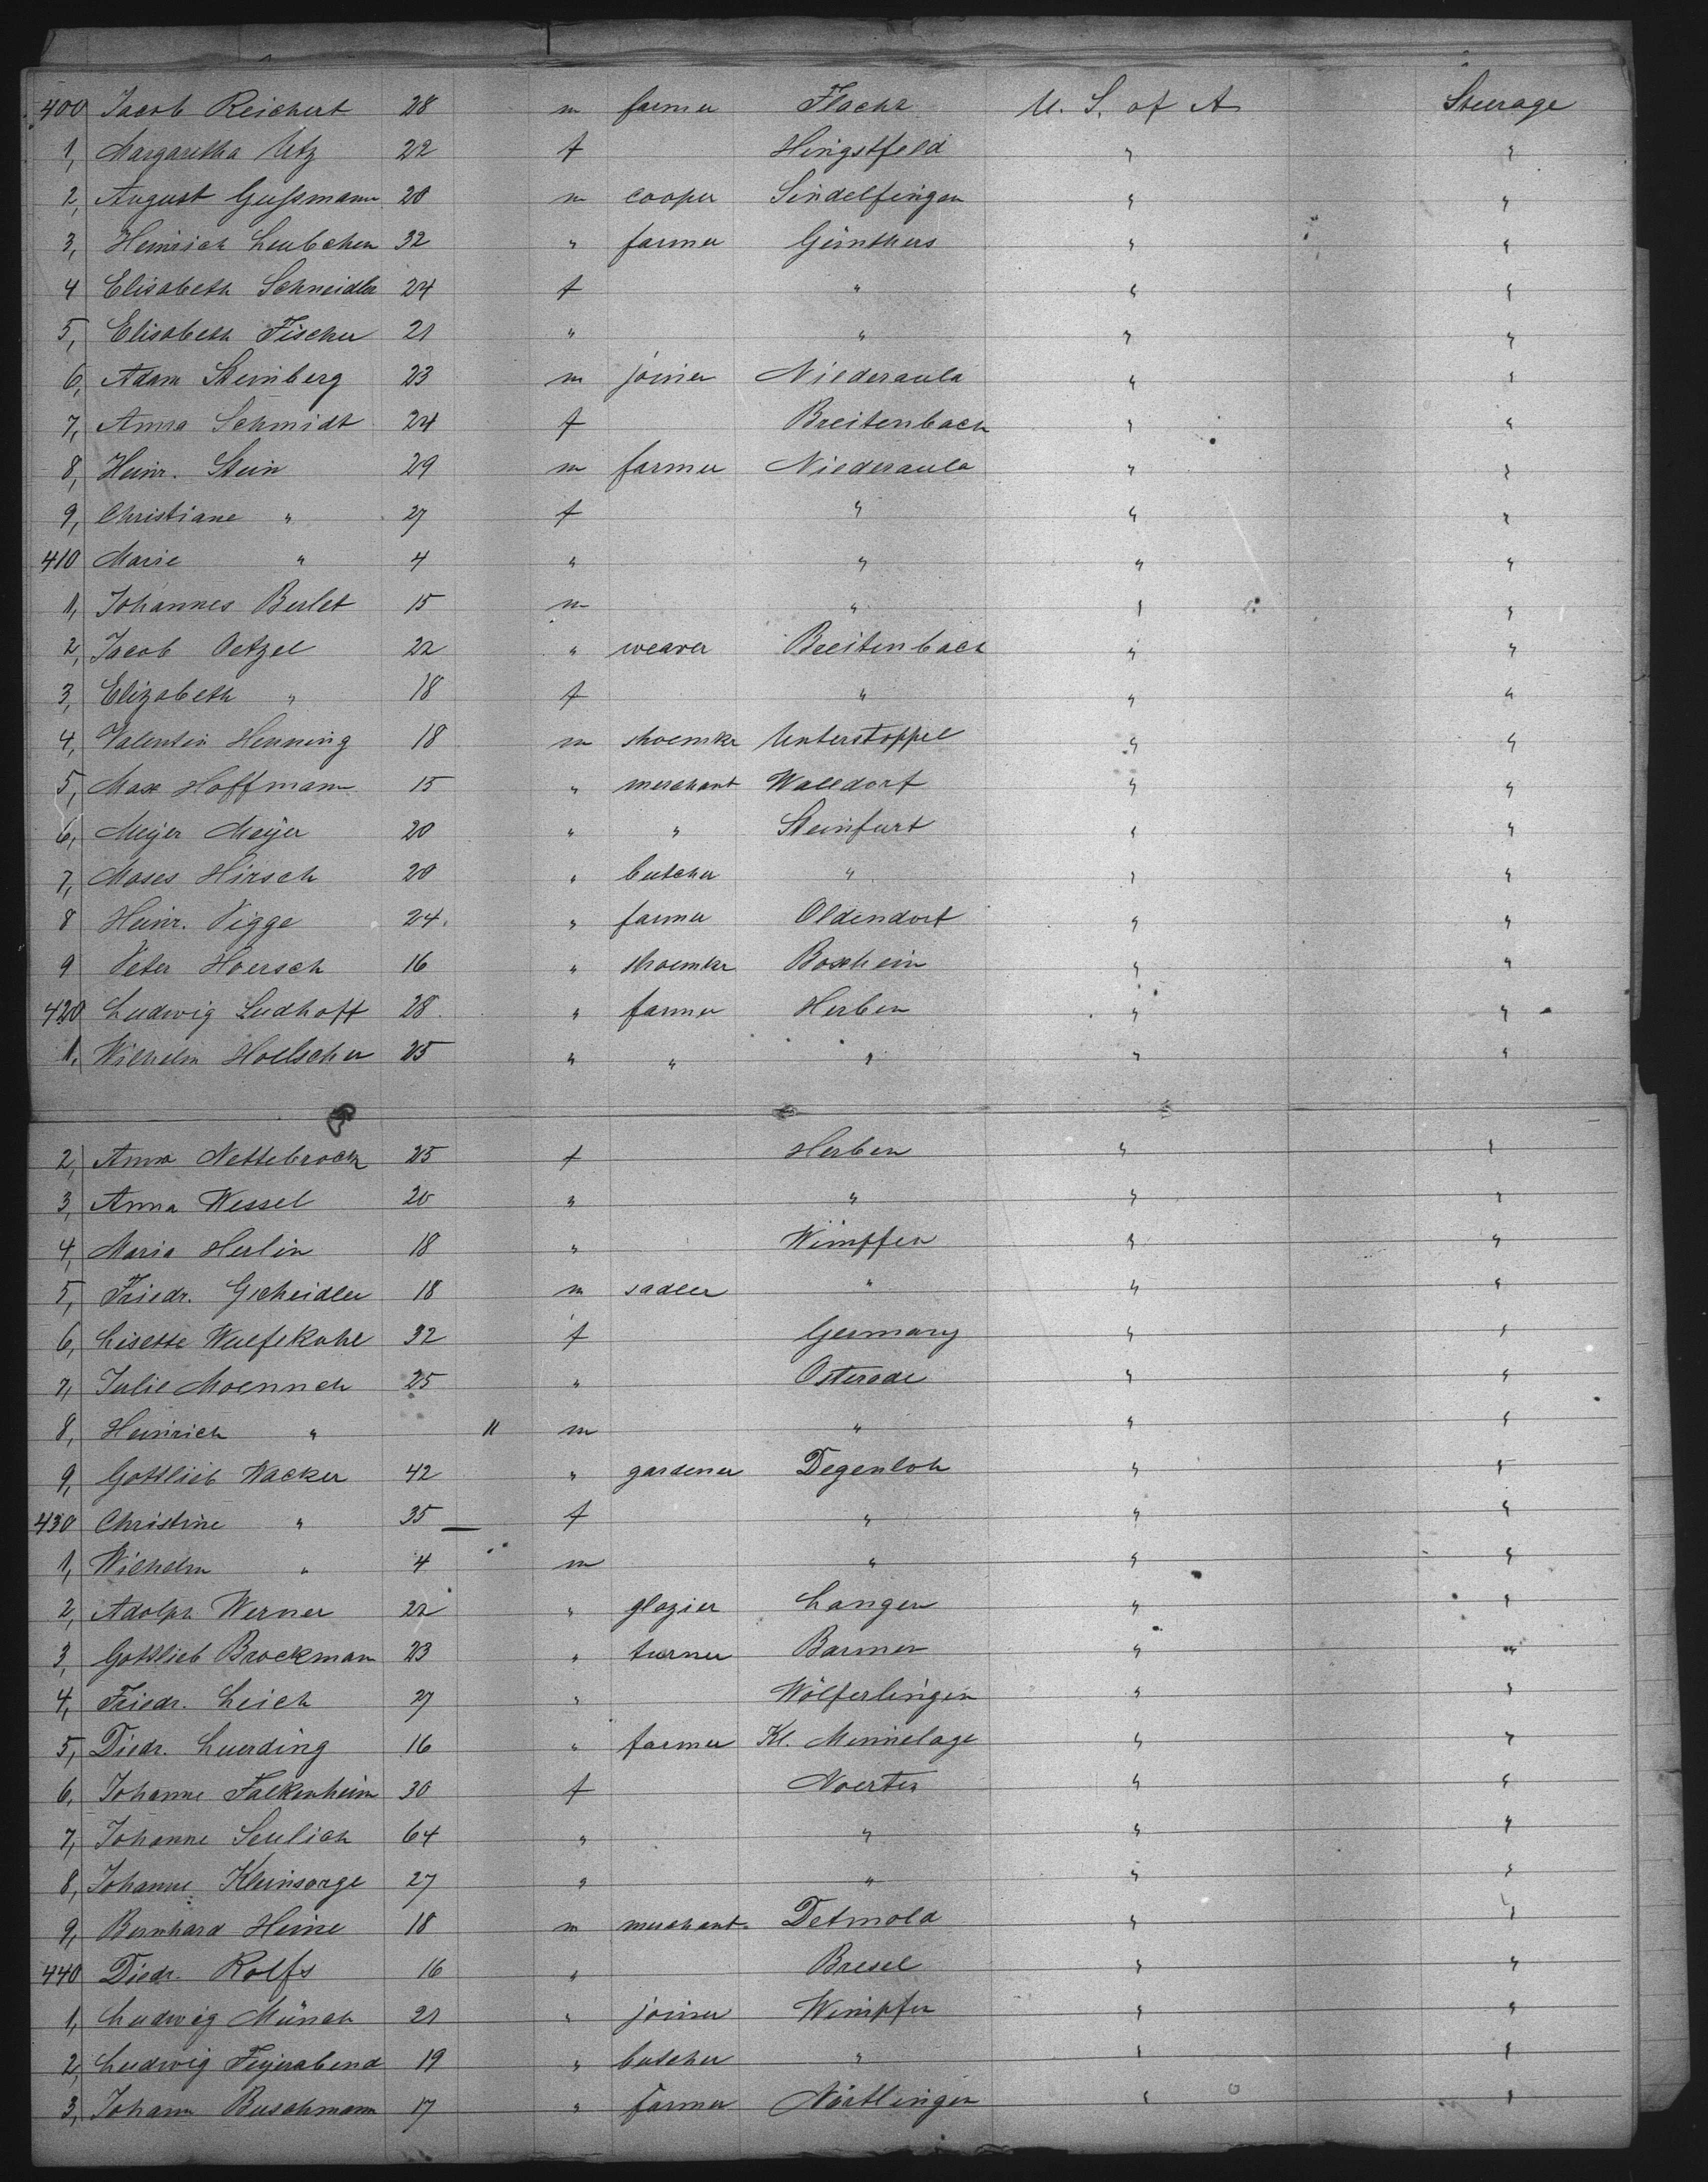 400 Jacob Reichert 28 m farmer Flacht U. S. of A Steerage
1, Margaretha Utz 22 f Hengstfeld " "
2, August Gussmann 20 m cooper Sindelfingen " "
3, Heinrich Leubchen 32 " farmer Günthers " "
4 Elisabeth Schneidler 24 f " " "
5, Elisabeth Fischer 21 " " " "
6, Adam Steinberg 23 m joiner Niederaula " "
7, Anna Schmidt 24 f Breitenbach " "
8, Heinr. Stein 29 m farmer Niederaula " "
9, Christiane " 27 f " " "
410 Marie " 4 " " " "
1, Johannes Berlet 15 m " " "
2, Jacob Oetzel 22 " weaver Breitenbach " "
3, Elizabeth " 18 f " " "
4, Valentin Henning 18 m shoemkr Unterstoppel " "
5, Max Hoffmann 15 " merchant Walldorf " "
6, Meijer Meijer 20 " " Steinfurt " "
7, Moses Hirsch 20 " butcher " " "
8 Heinr. Pigge 24 " farmer Oldendorf " "
9 Peter Hoersch 16 " shoemkr Boxheim " "
420 Ludwig Ludhoff 28 " farmer Herben " "
1, Wilhelm Hoelscher 25 " " " " "
2, Anna Nettebrock 25 f Herben " "
3, Anna Wessel 20 " " " "
4, Maria Herlin 18 " Wimpfen " "
5, Friedr. Gscheidler 18 m sadler " " "
6, Lisette Wulfekohl 32 f Germany " "
7, Julie Moennch 25 " Osterode " "
8, Heinrich " 11 m " " "
9, Gottlieb Wacker 42 " gardener Degenloh " "
430 Christine " 35 f " " "
1, Wilhelm " 4 m " " "
2, Adolph Werner 22 " glazier Langen " "
3, Gottlieb Brockmann 23 " turner Barmen " "
4, Friedr. Leich 27 " Wölferlingen " "
5, Diedr. Luerding 16 " farmer Kl. Mimmelage " "
6, Johanne Falkenheim 30 f Noerten " "
7, Johanne Seulich 64 " " " "
8, Johanne Kleinsorge 27 " " " "
9, Bernhard Heine 18 m merchant Detmold " "
440 Diedr. Rolfs 16 " Bresel " "
1, Ludwig Münch 21 " joiner Wimpfen " "
2, Ludwig Feijerabend 19 " butcher " " "
3, Johann Buschmann 17 " farmer Nörtlingen " "